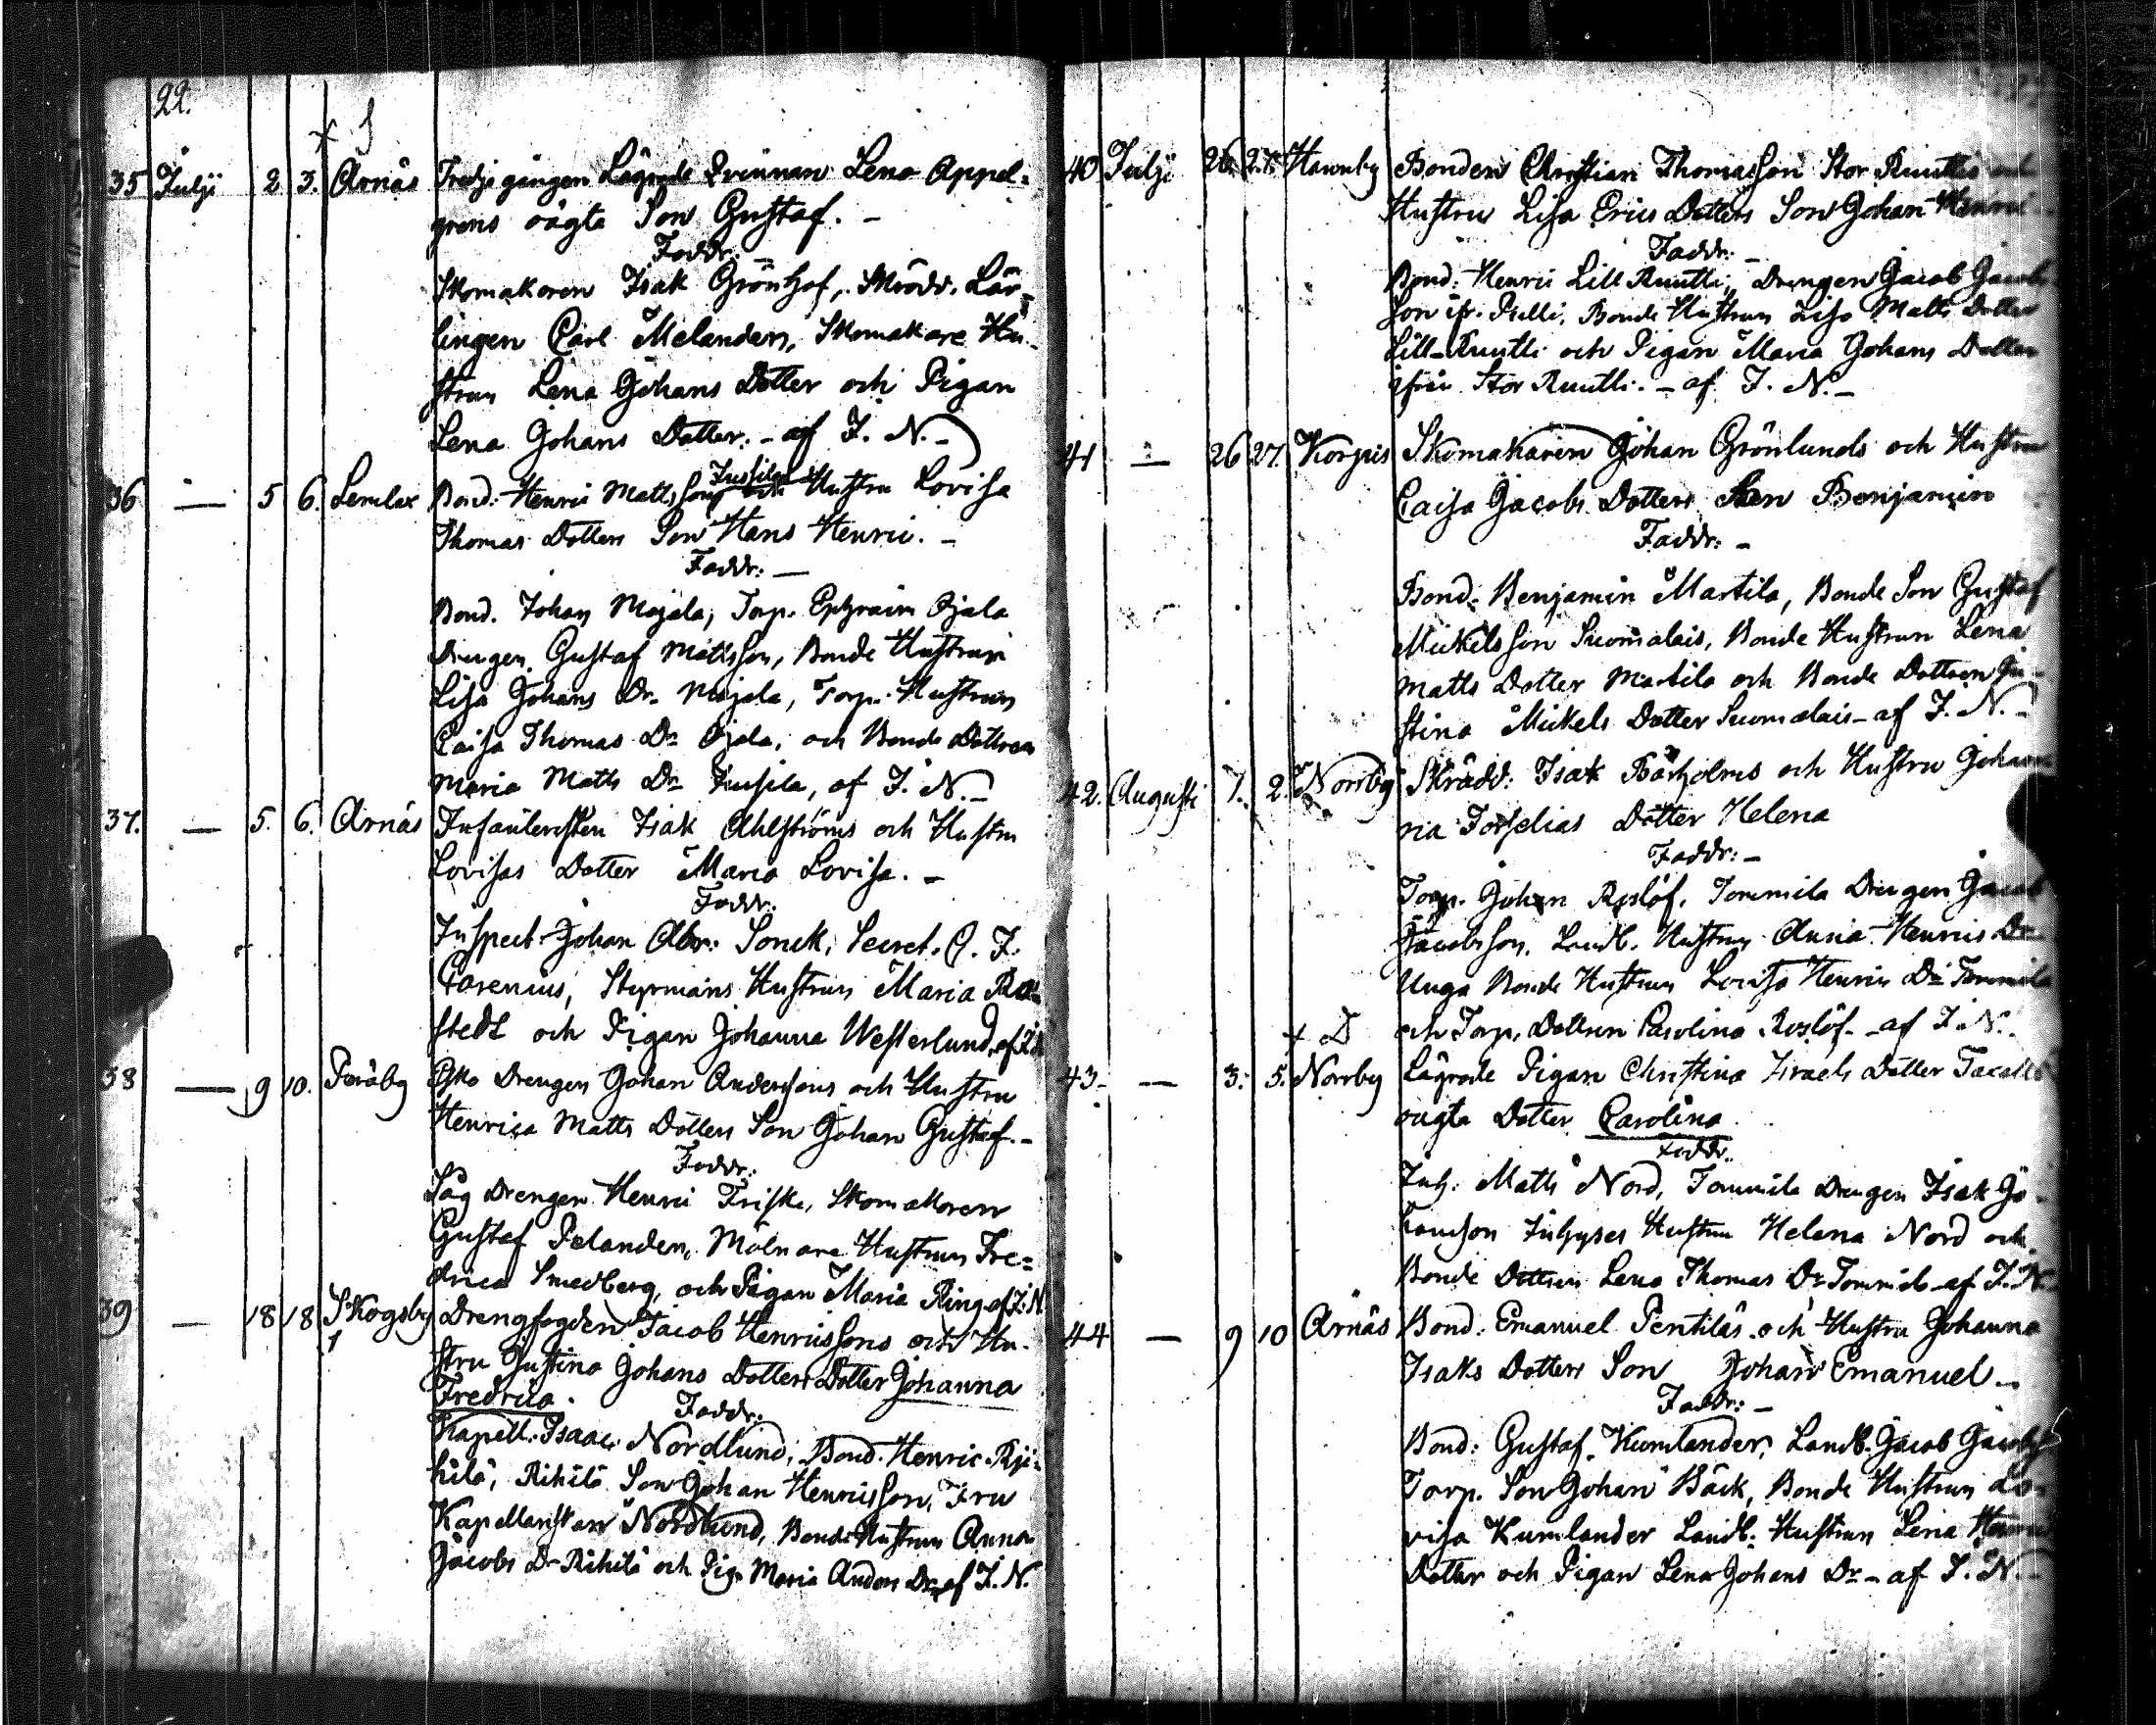 22.
35 Julji 2 3. Arnäs Tredje gången Lägrade Qvinnan Lena Appel-
grens oägta Son Gustaf. -
Faddr: -
Skomakaren Isak Grönhof, Skrädd. Lär-
lingen Carl Melander, Skomakare Hu-
strun Lena Johans Dotter och Pigan
Lena Johans Dotter. - af I. N. -
36 — 5 6. Lemlax Bond: Henric Mattsson Jussilas och Hustru Lovisa
Thomas Dotters Son Hans Henric. -
Faddr: —
Bond. Johan Majala, Torp. Ephraim Ojala
Drengen Gustaf Mattsson, Bonde Hustrun
Lisa Johans Dr. Majala, Torp. Hustrun
Caisa Thomas Dr Ojala, och Bonde Dottren
Maria Matts Dr Jussila, af I. N. -
37. — 5. 6. Arnäs Infanteristen Isak Ahlströms och Hustru
Lovisas Dotter Maria Lovisa. -
Faddr:
Inspect. Johan Abr: Sonck, Secret. C. F.
Hustrun Maria
stedt och Pigan Johanna Westerlund, af I. N.
38 — 9 10. Drengen Johan Anderssons och Hustru
Henrica Matts Dotters Son Johan Gustaf. -
Faddr:
Såg Drengen Henric Friske, Skomakaren
Gustaf Pelander, Mölnare Hustrun Fre=
drica Smedberg, och Pigan Maria Ring af I. N.
39 — 18 18 Skogsby Drengfogden Jacob Henricssons och Hu-
stru Justina Johans Dotters Dotter Johanna
Fredrica.
Faddr:
Kapell. Isaac Nordlund, Bond. Henric Riji-
hilä, Rihilä Son Johan Henricsson, Fru
Kapellanskan Nordlund, Bonde Hustrun Anna
Jacobs Dr Rihilä och Pig. Maria Anders Dr, af I. N.
40 Julji 26. 27. Hawnby Bonden Christian Thomasson Stor Ruuttis och
Hustru Lisa Erics Dotters Son Johan Henric
Faddr: -
Bond: Henric Lill Ruutti, Drengen Jacob Jacobs
son ifr. Pelli, Bonde Hustrun Lisa Matts Dotter
Lill-Ruutti och Pigan Maria Johans Dotter
ifrån Stor Ruutti. - af I. N. -
41 — 26 27. Korpis Skomakaren Johan Grönlunds och Hustru
Caisa Jacobs Dotters Son Benjamin
Faddr: -
Bond: Benjamin Martila, Bonde Son Gustaf
Mickelsson Suomalais, Bonde Hustrun Lena
Matts Dotter Martila och Bonde Dottren Ju-
stina Mickels Dotter Suomalais - af I. N. -
42. Augusti 1. 2. Norrby Skrädd: Isak Bärholms och Hustru Johan
na Forselias Dotter Helena
Faddr: -
Torp. Johan Roslöf, Tommila Drengen Jacob
Jacobsson, Landb. Hustrun Anna Henrics Dr
Unga Bonde Hustrun Lovisa Henrics Dr Tommila
och Torp. Dottren Carolina Roslöf - af I. N.
43. — 3. 5. Norrby Lägrade Pigan Christina Israels Dotter
oägta Dotter Carolina
Faddr:
Inh: Matts Nord, Tommila Drengen Isak Jo-
hansson Inhyses Hustru Helena Nord och
Bonde Dottren Lena Thomas Dr Tommila - af I. N.
44 — 9 10 Arnäs Bond: Emanuel Pentiläs och Hustru Johanna
Isaks Dotters Son Johan Emanuel -
Faddr: -
Bond: Gustaf Kumlander, Landb. Jacob Jacobss
Torp. Son Johan Bäck, Bonde Hustrun Lo-
visa Kumlander Landb: Hustrun Lena Henrics
Dotter och Pigan Lena Johans Dr - af I. N. -